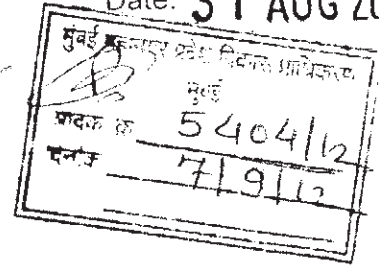 Date: 31 AUG 20
मुंबई महानगर प्रदेश विकास प्राधिकरण
मुंबई
5404/12
दिनांक 7/9/12